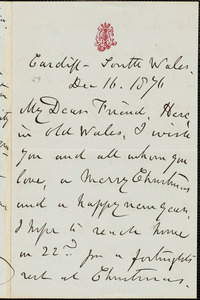 Cardiff - South Wales.
Dec 16. 1876
My Dear Friend, Here,
in old Wales, I wish
you and all whom you
love, a Merry Christmas
and a happy new year.
I hope to reach home
on 22nd for a fortnight's
rest at Christmas.